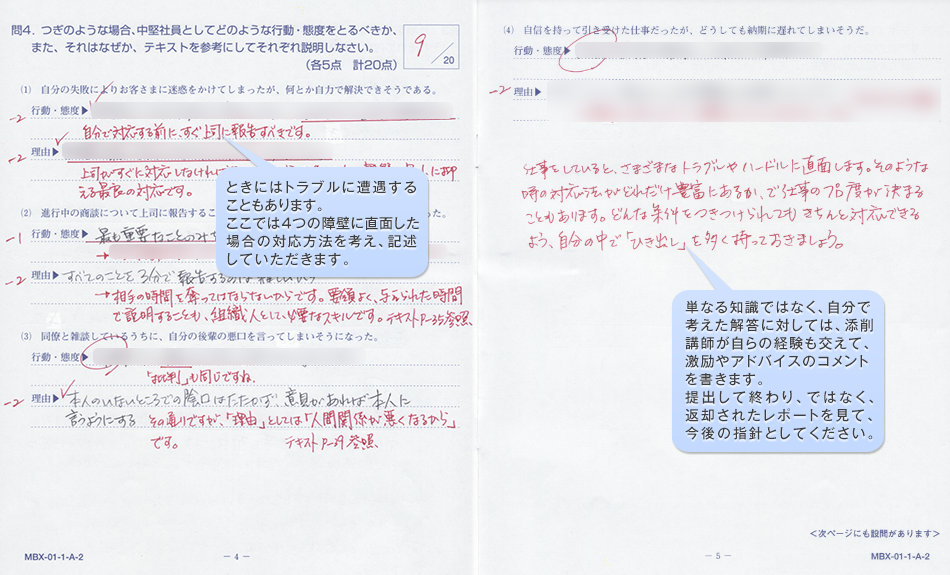 問4．つぎのような場合、中堅社員としてどのような行動・態度をとるべきか、
また、それはなぜか、テキストを参考にしてそれぞれ説明しなさい。
(各5点　計20点)
9/20
(1) 自分の失敗によりお客さまに迷惑をかけてしまったが、何とか自力で解決できそうである。
-2 行動・態度▶
自分で対応する前に、すぐ上司に報告すべきです。
-2 理由▶
上司がすぐに対応しなければ
える最良の対応です。
(2) 進行中の商談について上司に報告するこ
った。
-1 行動・態度▶ 最も重要なことのみ
-2 理由▶ すべてのことを3分で報告するのは
→相手の時間を奪ってはならないからです。要領よく、与えられた時間
で説明することも、組織人として必要なスキルです。テキストP-35参照
(3) 同僚と雑談しているうちに、自分の後輩の悪口を言ってしまいそうになった。
行動・態度▶
「批判」も同じですね。
-2 理由▶ 本人のいないところでの陰口はたたかず、意見があれば本人に
言うようにする その通りですが、「理由」としては「人間関係が悪くなるから」
です。 テキストP-29参照
MBX-01-1-A-2
－ 4 －
ときにはトラブルに遭遇する
こともあります。
ここでは4つの障壁に直面した
場合の対応方法を考え、記述
していただきます。
(4) 自信を持って引き受けた仕事だったが、どうしても納期に遅れてしまいそうだ。
行動・態度▶
-2 理由▶
仕事をしていると、さまざまなトラブルやハードルに直面します。そのような
時の対応法がどれだけ豊富にあるか、で仕事の
こともあります。どんな条件をつきつけられてもきちんと対応できる
よう、自分の中で「ひき出し」を多く持っておきましょう。
単なる知識ではなく、自分で
考えた解答に対しては、添削
講師が自らの経験も交えて、
激励やアドバイスのコメント
を書きます。
提出して終わり、ではなく、
返却されたレポートを見て、
今後の指針としてください。
＜次ページにも設問があります＞
－ 5 －
MBX-01-1-A-2